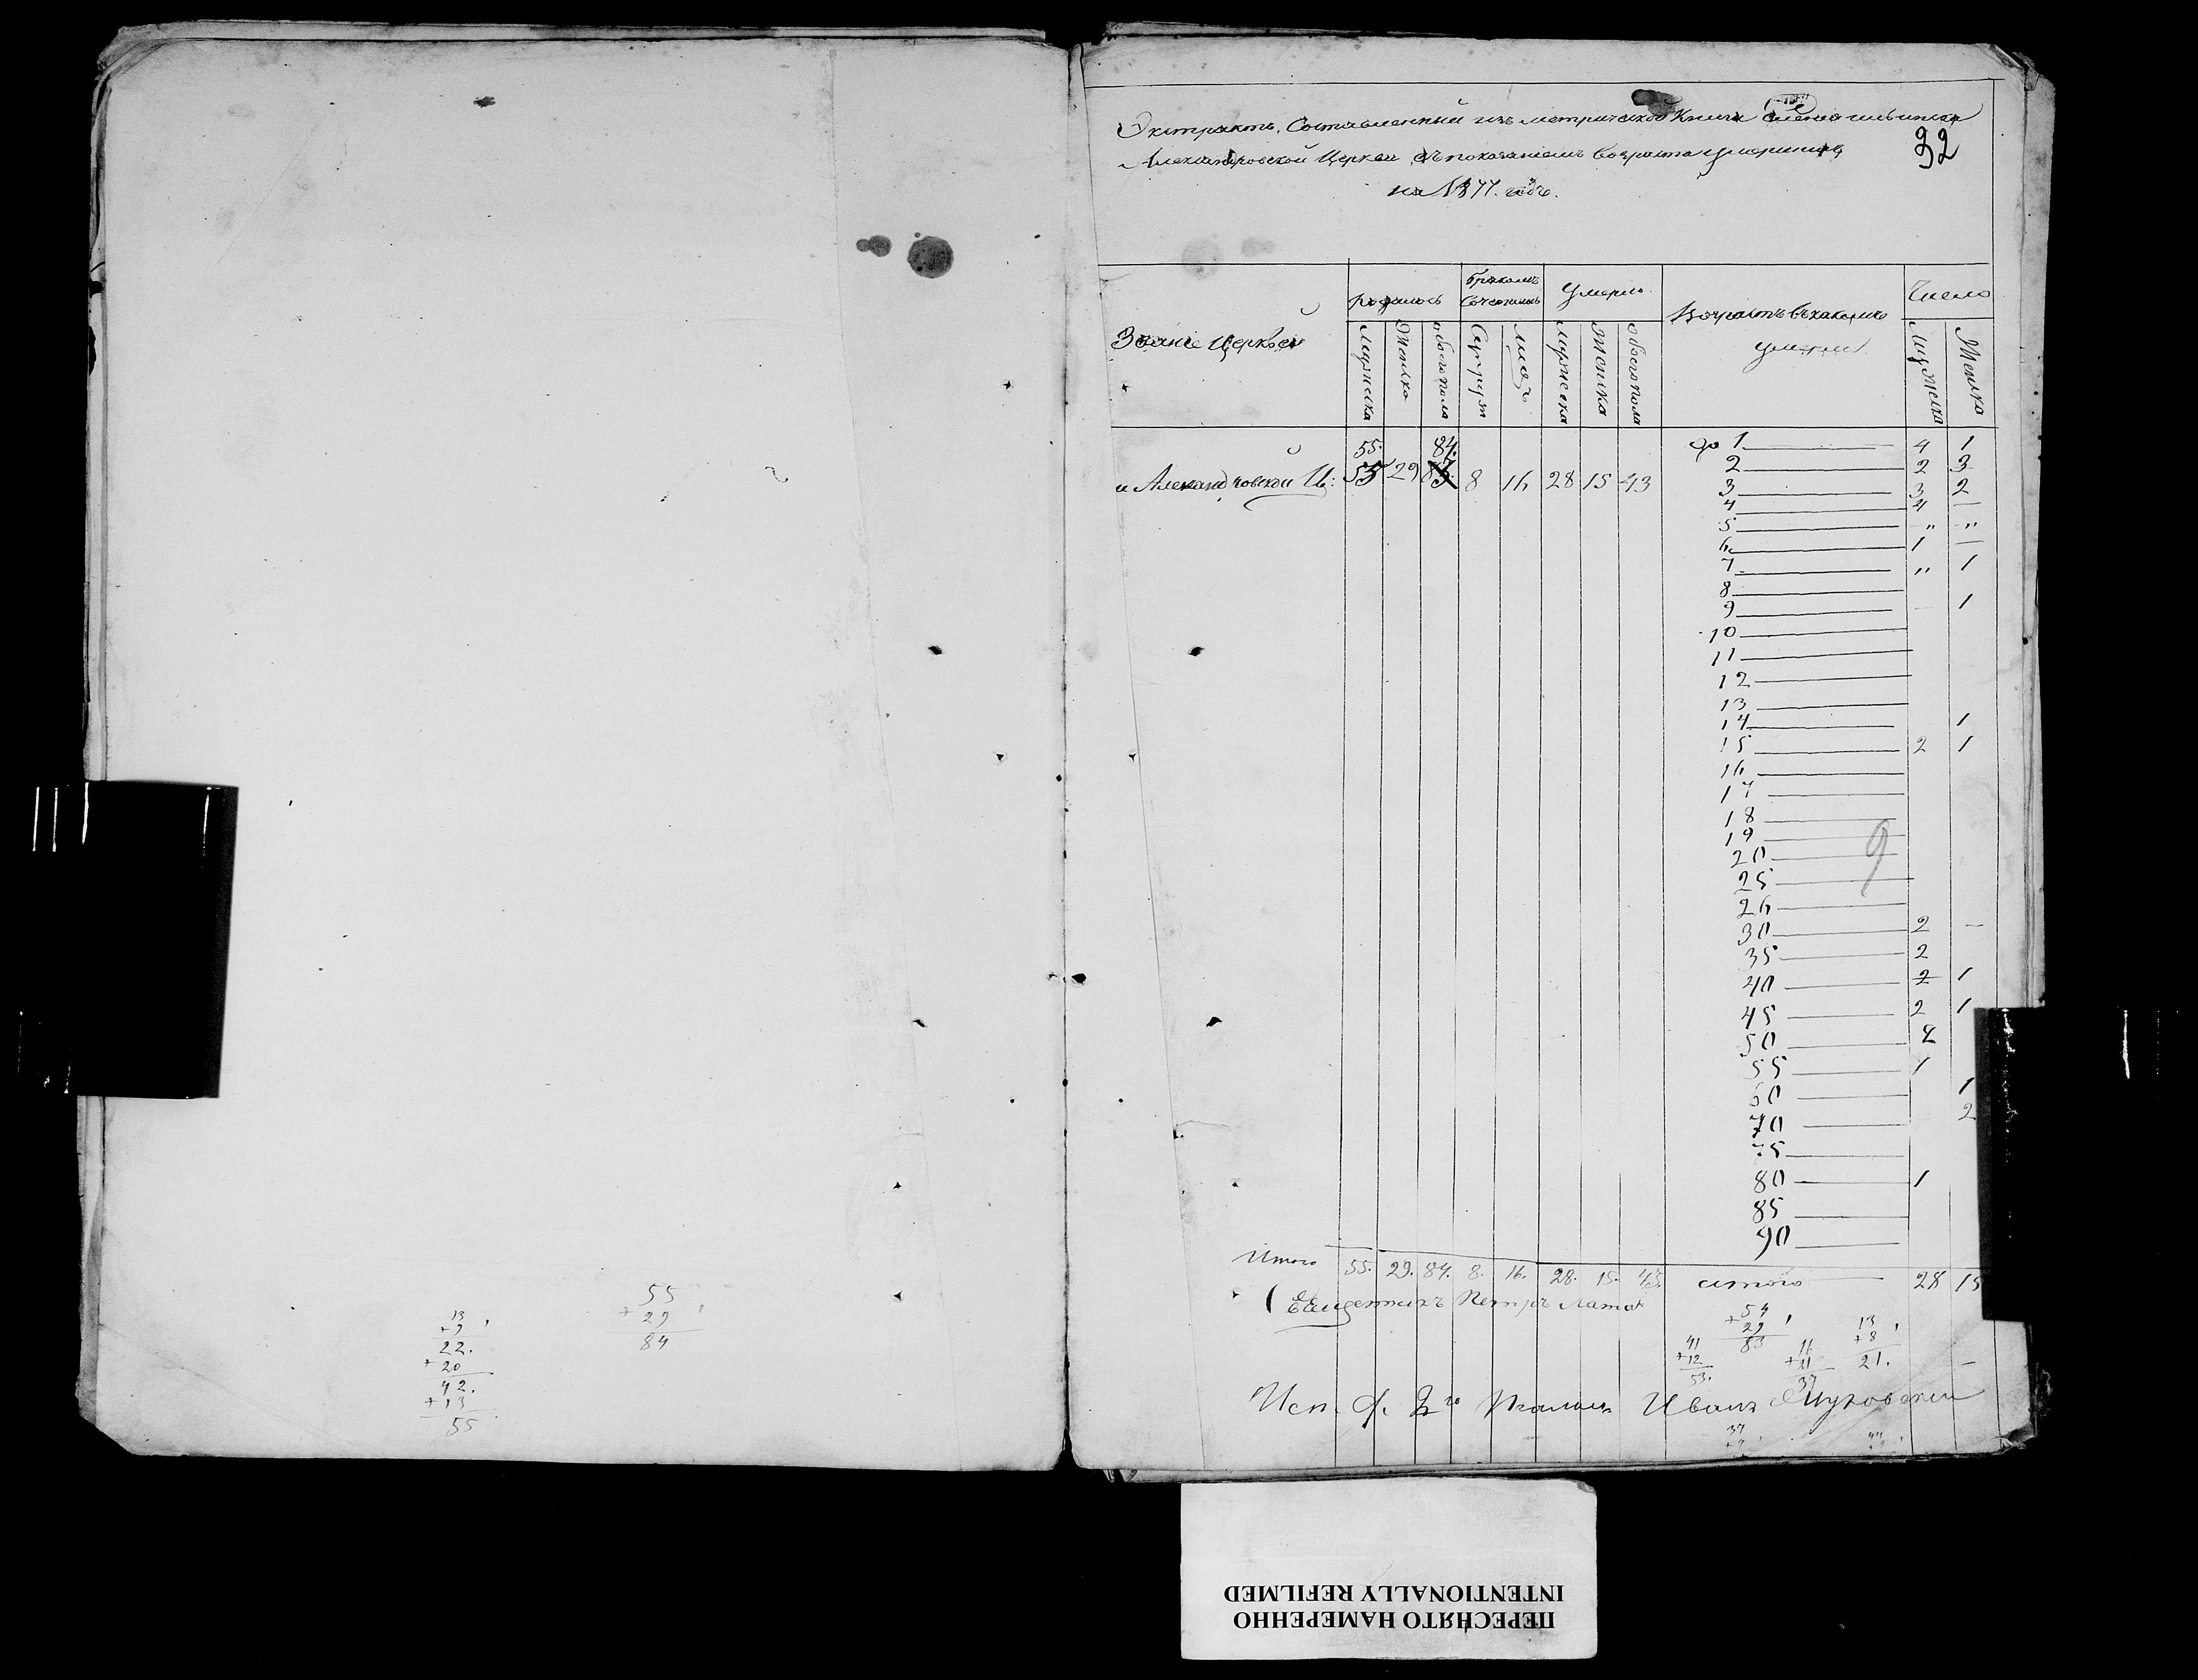 13
+9
22.
+20
42.
+13
55
55
+29
84
Экстрактъ, Составленный изъ метрической Книги
Александровской Церкви, съ показаніемъ возраста умершихъ
32
на 1877. годъ.
Званіе Церквей
родилось
бракомъ Сочеталось
Умерло
Возрастъ въ какомъ
умерли
Число
Мужеска
Женска
обоего пола
Супруж
лицъ
мужеска
женска
обоего пола
Мужеска
Женска
55. 84.
и Александровской Ц: 55 29 83 8 16 28 15 43
до 1 4 1
2 2 3
3 3 2
4 4 —
5 " "
6 1 —
7 " 1
8
9 — 1
10
11
12
13
14 1
15 2 1
16
17
18
19
20
9
25
26
30 2 —
35 2
40 2 1
45 2 1
50 2
55 1
60 1
70 2
75
80 1
85
90
Итого 55. 29. 84. 8. 16. 28. 15. 43. итого 28 15
Священникъ Петръ
+54
29
83
41
+12
53.
16
+21
37
13
+8
21.
Исп. д. Иванъ
37
ПЕРЕСНЯТО НАМЕРЕННО
INTENTIONALLY REFILMED